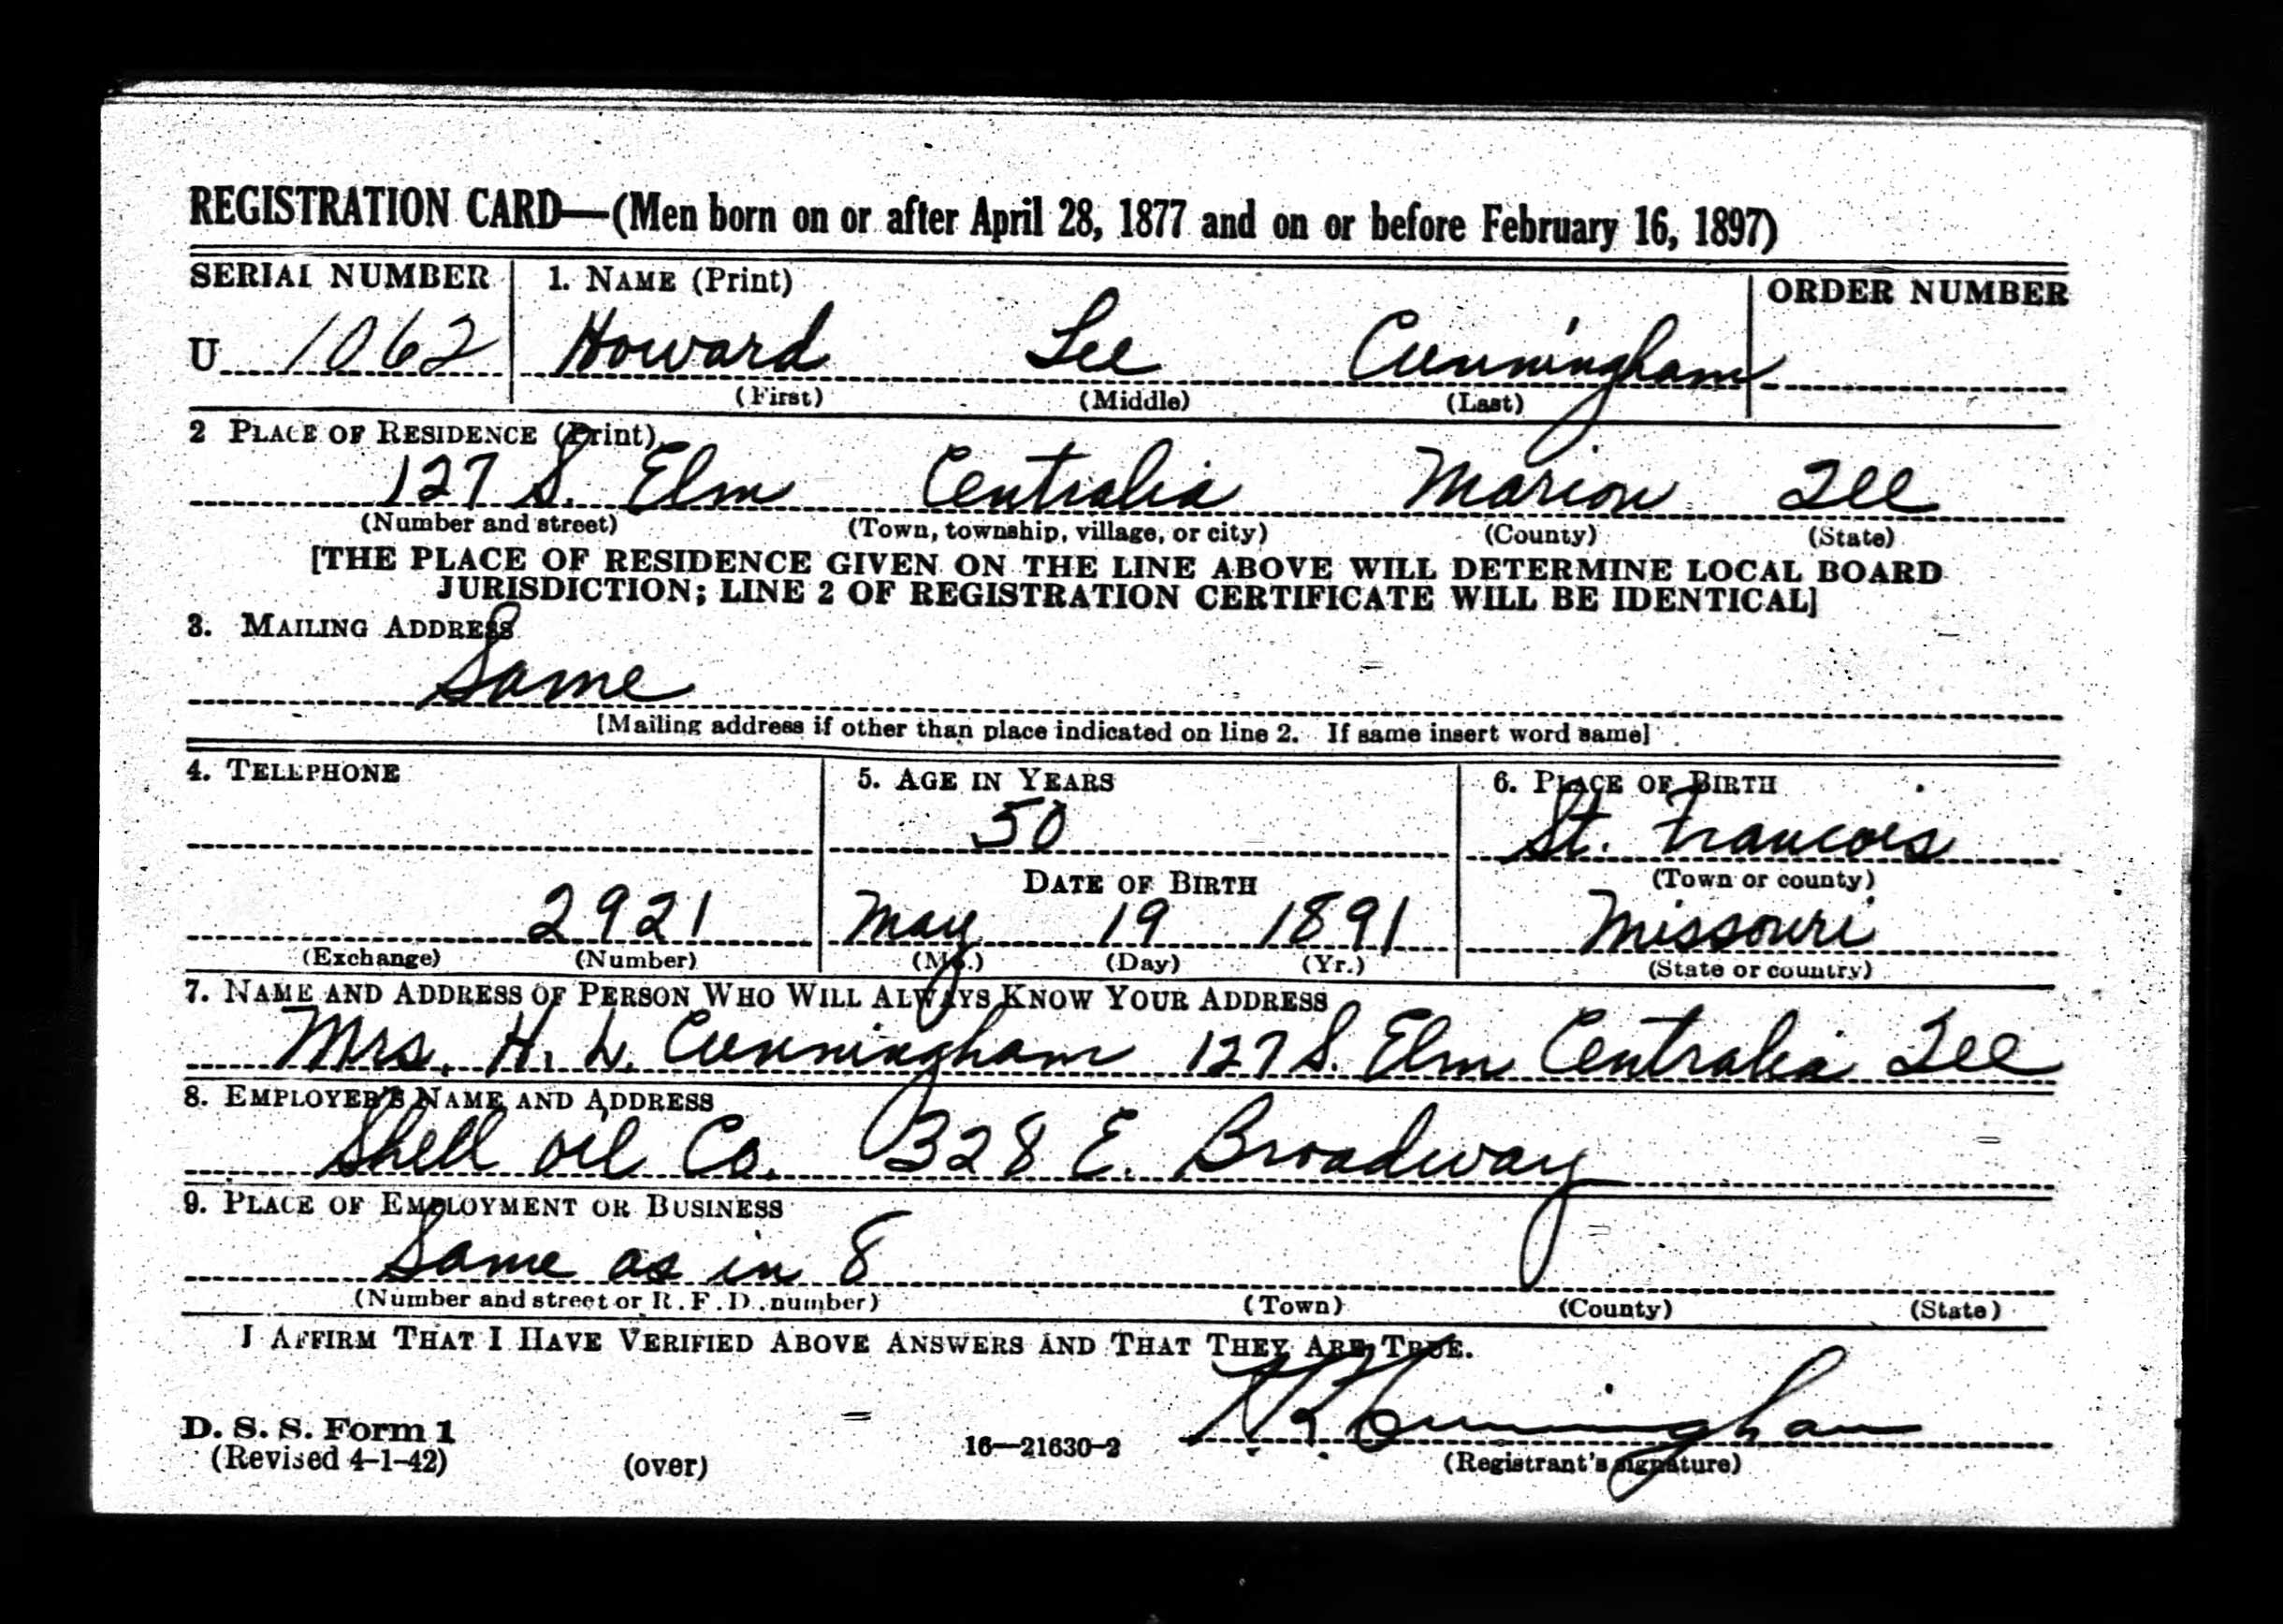 REGISTRATION CARD—(Men born on or after April 28, 1877 and on or before February 16, 1897)
SERIAL NUMBER 1. NAME (Print) ORDER NUMBER
U 1062 Howard Lee Cunningham
(First) (Middle) (Last)
2 PLACE OF RESIDENCE (Print)
127 S. Elm Centralia Marion Ill
(Number and street) (Town, township, village, or city) (County) (State)
[THE PLACE OF RESIDENCE GIVEN ON THE LINE ABOVE WILL DETERMINE LOCAL BOARD
JURISDICTION; LINE 2 OF REGISTRATION CERTIFICATE WILL BE IDENTICAL]
3. MAILING ADDRESS
Same
[Mailing address if other than place indicated on line 2. If same insert word same]
4. TELEPHONE 5. AGE IN YEARS 6. PLACE OF BIRTH
50 St. Francois
DATE OF BIRTH (Town or county)
2921 May 19 1891 Missouri
(Exchange) (Number) (Mo.) (Day) (Yr.) (State or country)
7. NAME AND ADDRESS OF PERSON WHO WILL ALWAYS KNOW YOUR ADDRESS
Mrs. H. L. Cunningham 127 S. Elm Centralia Ill
8. EMPLOYER'S NAME AND ADDRESS
Shell Oil Co. 328 E. Broadway
9. PLACE OF EMPLOYMENT OR BUSINESS
Same as in 8
(Number and street or R. F. D. number) (Town) (County) (State)
I AFFIRM THAT I HAVE VERIFIED ABOVE ANSWERS AND THAT THEY ARE TRUE.
H L Cunningham
D. S. S. Form 1
(Revised 4-1-42) (over) 16—21630-2 (Registrant's signature)